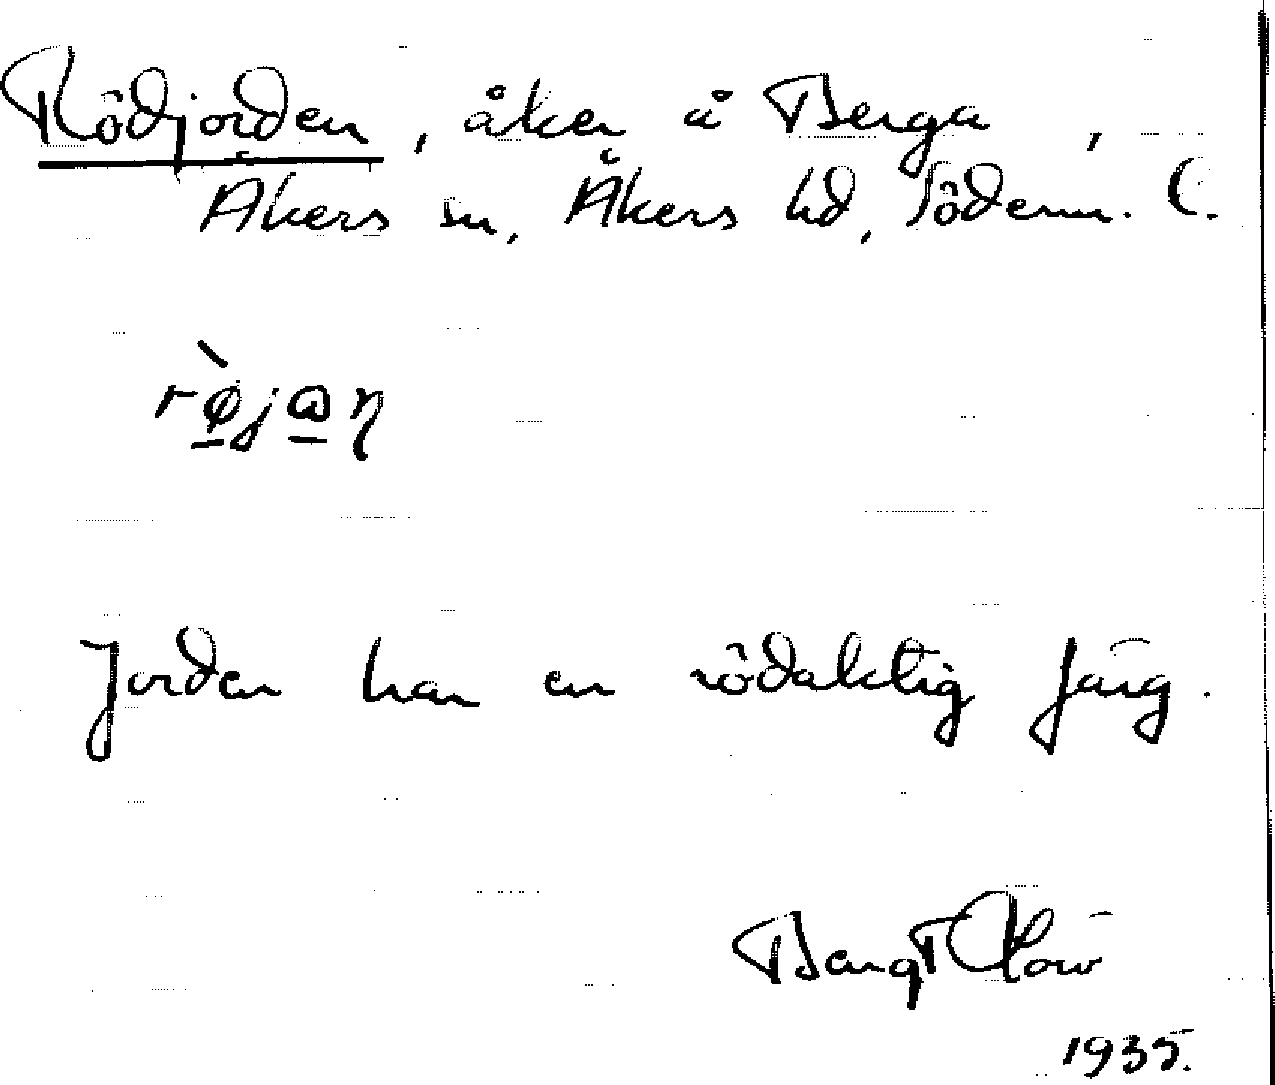 Rödjorden, åker å Berga,
Åkers sn, Åkers hd, Söderm. l.
rø̀jaṇ
Jorden har en rödaktig färg.
Bengt
1935.